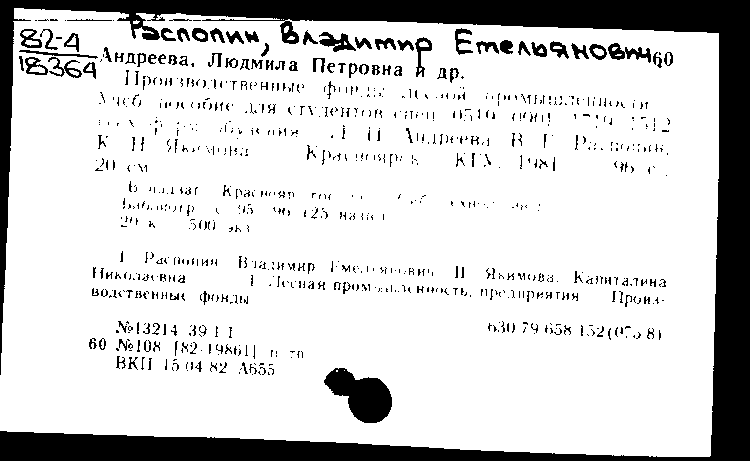 Распопин, Владимир Емельянович
82-4
18364
60
Андреева, Людмила Петровна и др.
Производственные фонды лесной промышленности
Учеб. пособие для студентов спец. 0519, 0901, 1719, 1512
обучения Л. П. Андреева, В. Е. Распопин,
К. Н. Якимова Красноярск КГУ, 1981 96 с.
20 см
В надзаг. Краснояр. гос.
Библиогр. с 95-96 (25 назв.)
20 к. 500 экз.
I. Распопин, Владимир Емельянович II. Якимова, Капиталина
Николаевна 1. Лесная промышленность, предприятия Произ-
водственные фонды
№13214 39 1 1
630.79:658.152(075.8)
60 №108 [82-19861] п то
ВКП 15.04.82 А655